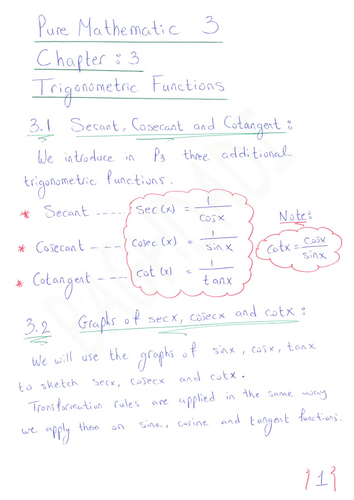 Pure Mathematic 3
Chapter : 3
Trigonometric Functions
3.1 Secant, Cosecant and Cotangent :
We introduce in P3 three additional
trigonometric functions.
* Secant ---- sec(x) = 1/cosx
* Cosecant ---- cosec(x) = 1/sinx
* Cotangent ---- cot(x) = 1/tanx
Note:
cotx = cosx/sinx
3.2 Graphs of secx, cosecx and cotx :
We will use the graphs of sinx, cosx, tanx
to sketch secx, cosecx and cotx.
Transformation rules are applied in the same way
we apply them on sine, cosine and tangent functions.
{1}